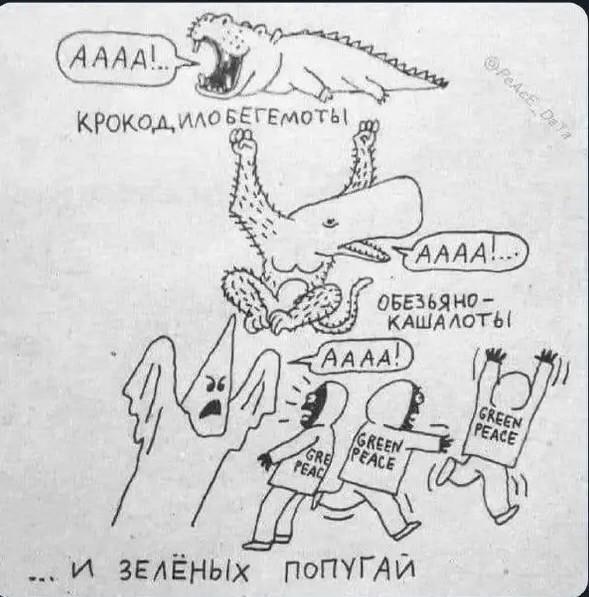 АААА!..
@PeAcE_DaTa
КРОКОДИЛОБЕГЕМОТЫ
АААА!...
ОБЕЗЬЯНО-
КАШАЛОТЫ
АААА!
GRE
PEAC
GREEN
PEACE
GREEN
PEACE
... И ЗЕЛЁНЫХ ПОПУГАЙ